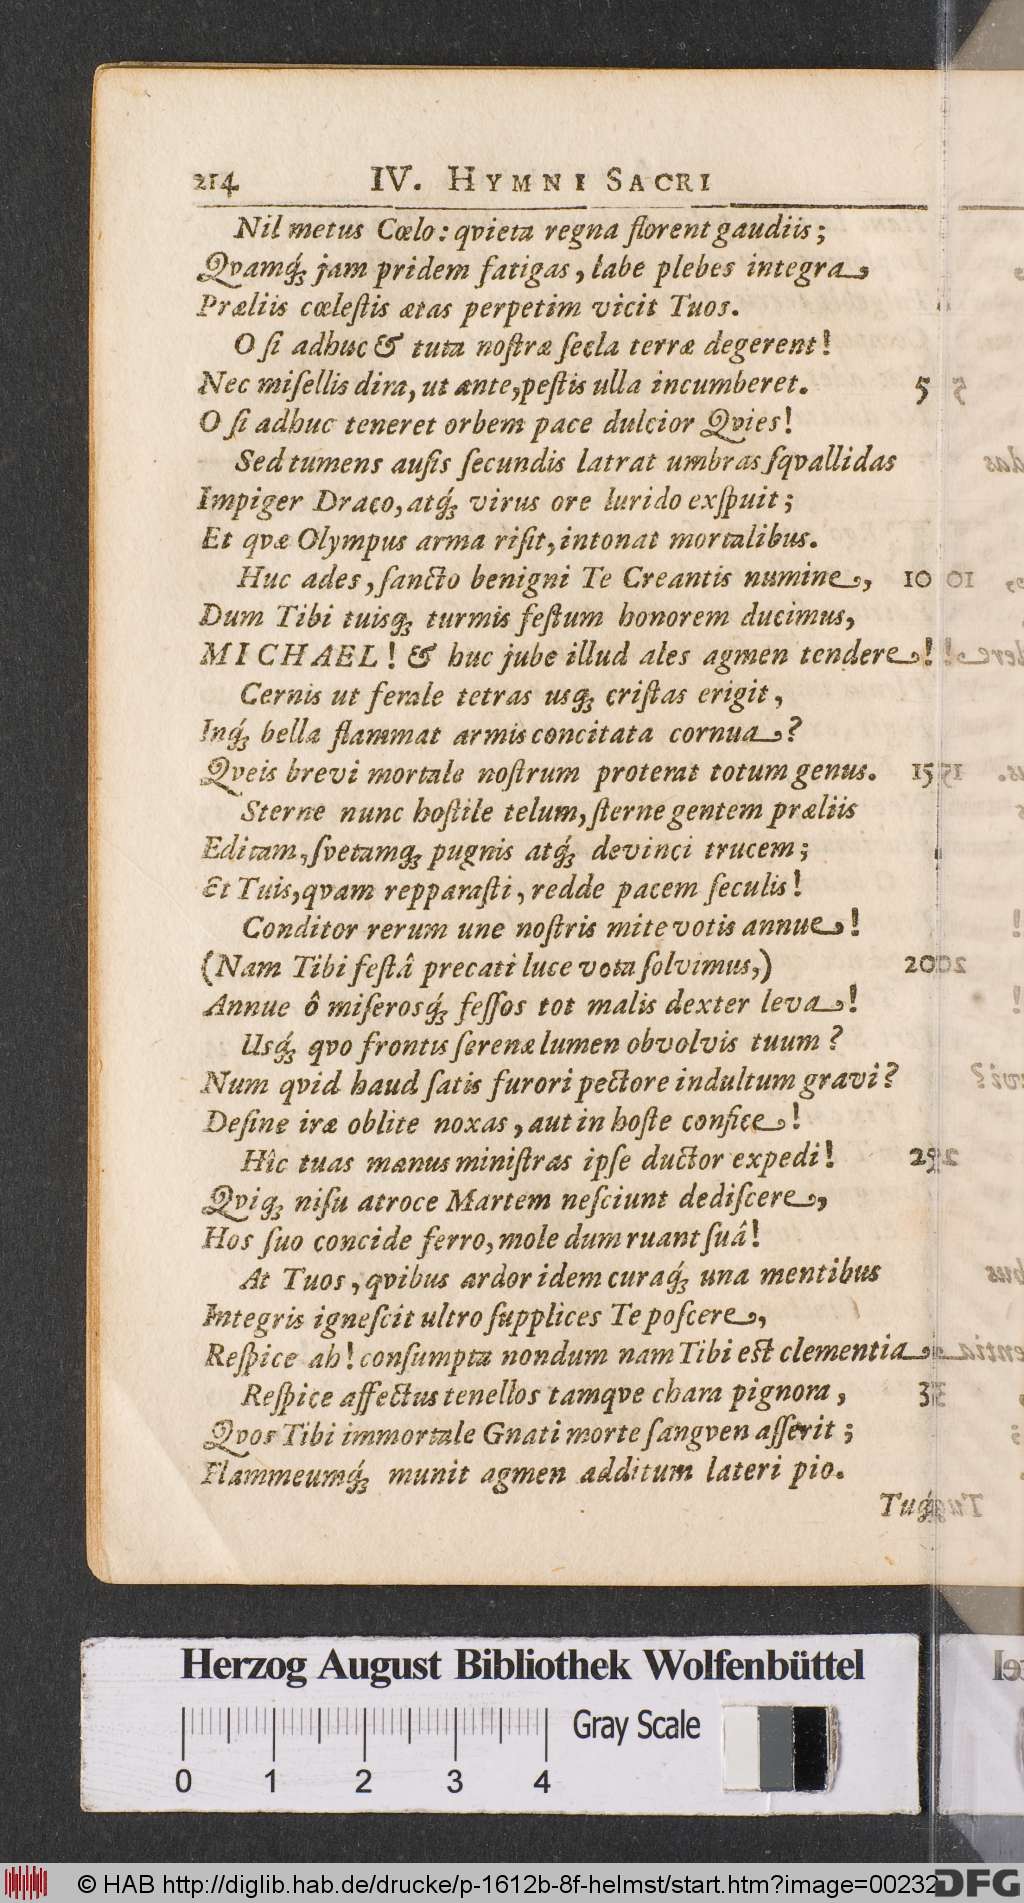 214 IV. HYMNI SACRI
Nil metus Cœlo: qvieta regna florent gaudiis;
Qvamq́; jam pridem fatigas, labe plebes integra,
Præliis cœleſtis ætas perpetim vicit Tuos.
O ſi adhuc & tuta noſtræ ſecla terræ degerent!
Nec miſellis dira, ut ante, peſtis ulla incumberet. 5
O ſi adhuc teneret orbem pace dulcior Qvies!
Sed tumens auſis ſecundis latrat umbras ſqvallidas
Impiger Draco, atq́; virus ore lurido exſpuit;
Et qvæ Olympus arma riſit, intonat mortalibus.
Huc ades, ſancto benigni Te Creantis numine, 10
Dum Tibi tuisq; turmis feſtum honorem ducimus,
MICHAEL! & huc jube illud ales agmen tendere!
Cernis ut ferale tetras usq; criſtas erigit,
Inq́; bella flammat armis concitata cornua?
Qveis brevi mortale noſtrum proterat totum genus. 15
Sterne nunc hoſtile telum, ſterne gentem præliis
Editam, ſvetamq; pugnis atq́; devinci trucem;
Et Tuis, qvam repparaſti, redde pacem ſeculis!
Conditor rerum une noſtris mite votis annue!
(Nam Tibi feſtâ precati luce vota ſolvimus,) 20
Annue ô miſerosq́; feſſos tot malis dexter leva!
Usq́; qvo frontis ſerenæ lumen obvolvis tuum?
Num qvid haud ſatis furori pectore indultum gravi?
Deſine iræ oblite noxas, aut in hoſte confice!
Hîc tuas manus miniſtras ipſe ductor expedi! 25
Qviq; niſu atroce Martem neſciunt dediſcere,
Hos ſuo concide ferro, mole dum ruant ſuâ!
At Tuos, qvibus ardor idem curaq́; una mentibus
Integris igneſcit ultro ſupplices Te poſcere,
Reſpice ah! conſumpta nondum nam Tibi eſt clementia.
Reſpice affectus tenellos tamqve chara pignora, 3
Qvos Tibi immortale Gnati morte ſangven aſſerit;
Flammeumq́; munit agmen additum lateri pio.
Tuq́;
Herzog August Bibliothek Wolfenbüttel
Gray Scale
0 1 2 3 4
© HAB http://diglib.hab.de/drucke/p-1612b-8f-helmst/start.htm?image=00232
DFG